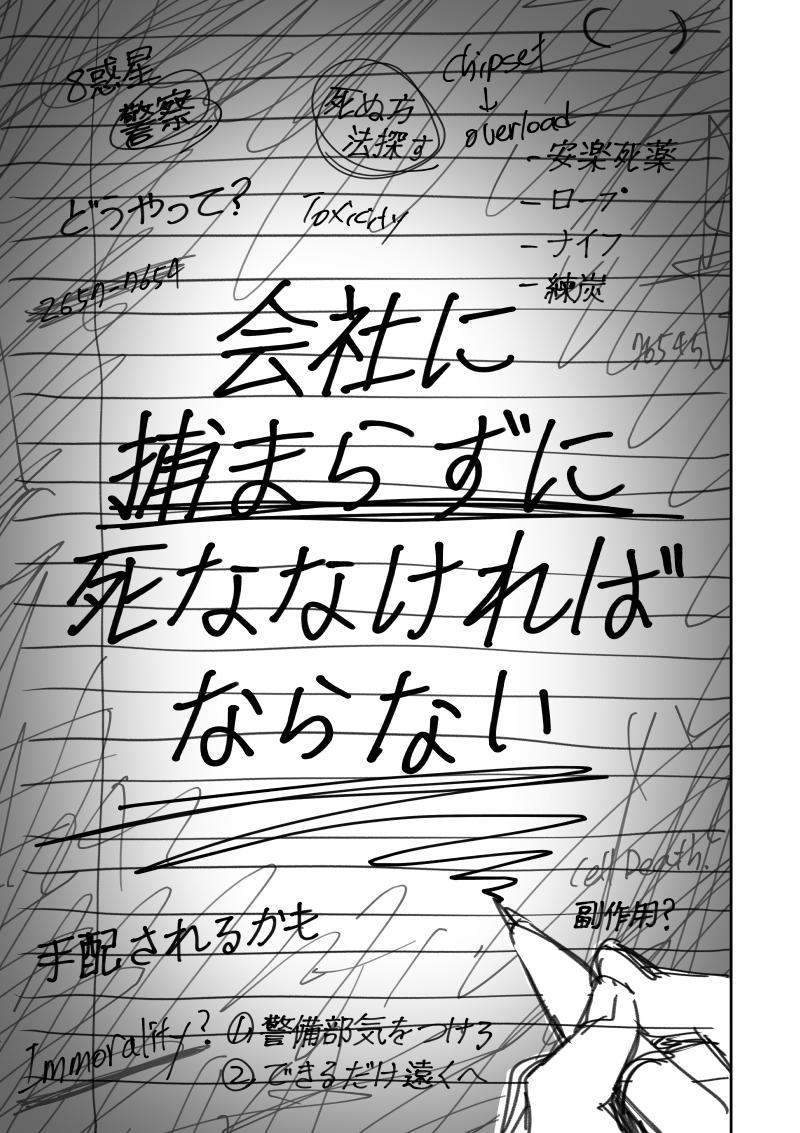 8惑星
警察
死ぬ方
法探す
chipset
↓
overload
- 安楽死薬
- ロープ
- ナイフ
- 練炭
どうやって?
Toxicity
2657-7654
76545
会社に
捕まらずに
死ななければ
ならない
Cell Death?
副作用?
手配されるかも
Immorality?
①警備部気をつけろ
②できるだけ遠くへ